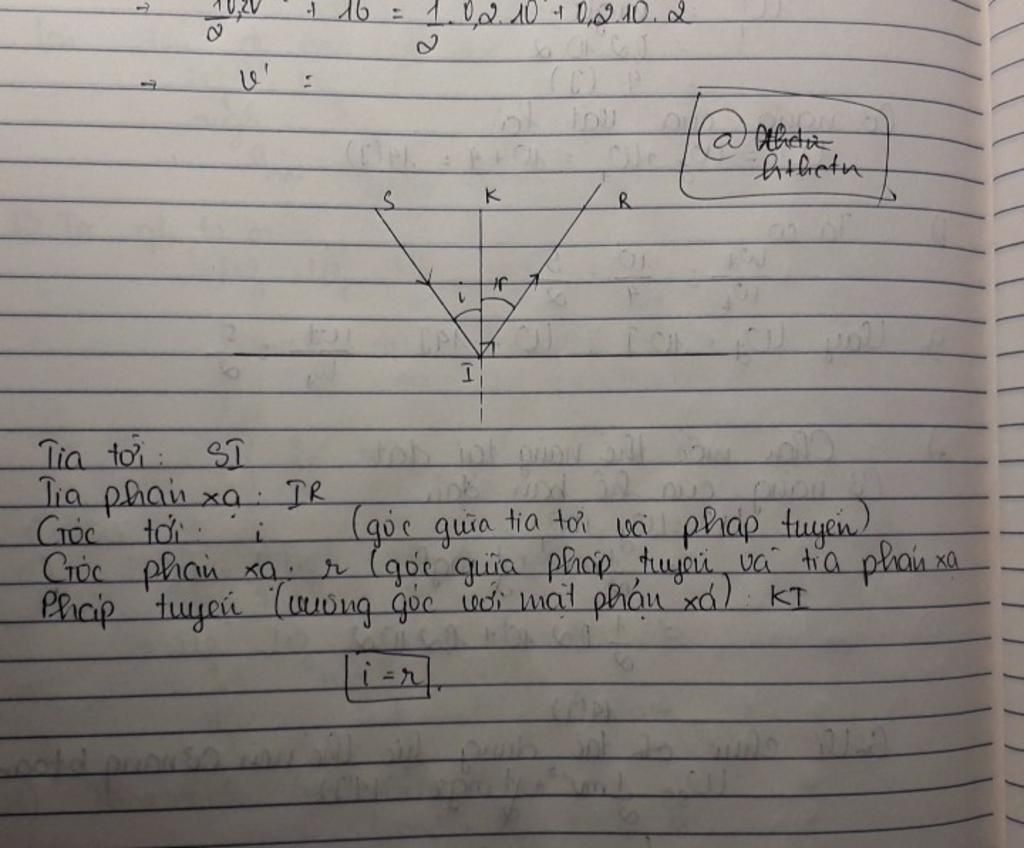 → 10,20/2 + 16 = 1/2 . 0,2 . 10 + 0,2.10. 2
→ v' =
a
S K R
i r
I
Tia tới: SI
Tia phản xạ: IR
Góc tới: i (góc giữa tia tới và pháp tuyến)
Góc phản xạ: r (góc giữa pháp tuyến và tia phản xạ
Pháp tuyến (vuông góc với mặt phản xạ): KI
i = r.